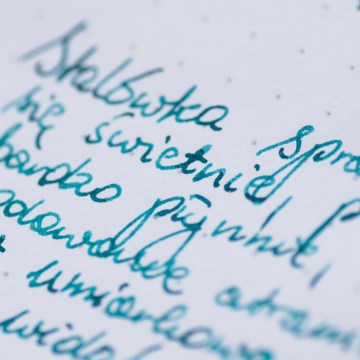 Stalówka spra
się świetnie, p
bardzo płynnie,
odowane atram
umiarkowa
widać